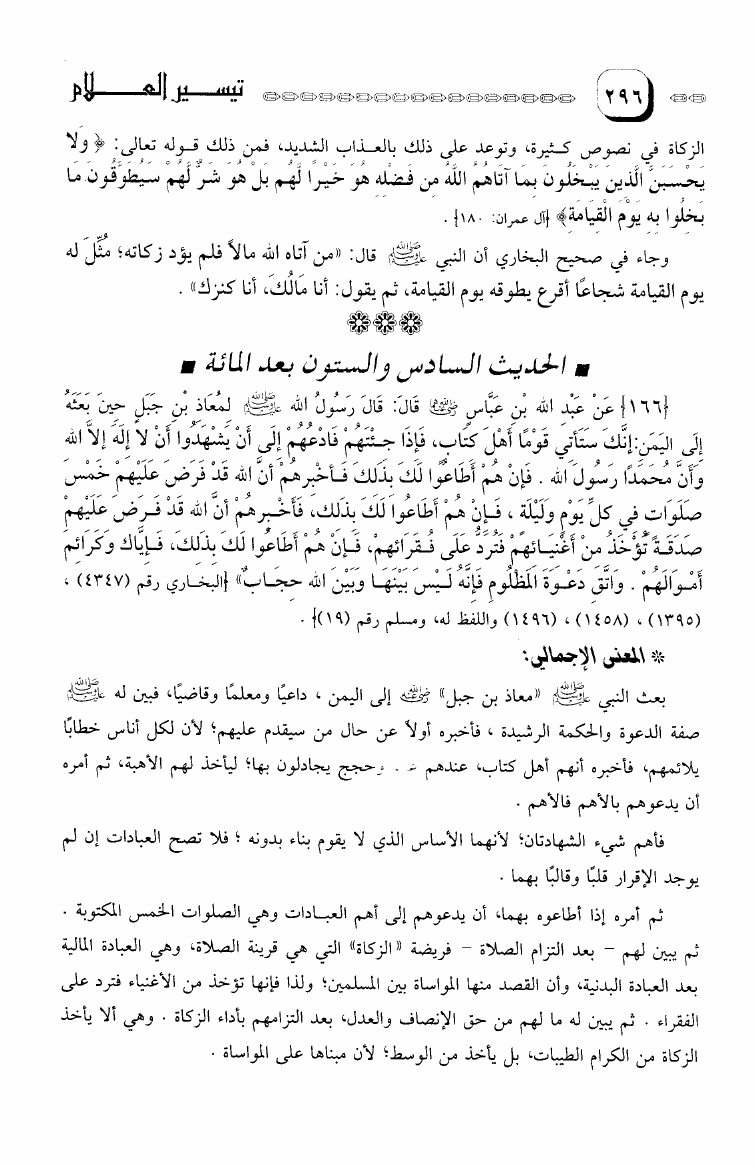 ٢٩٦ تيسير العلام
الزكاة في نصوص كثيرة، وتوعد على ذلك بالعذاب الشديد، فمن ذلك قوله تعالى: ﴿ وَلَا
يَحْسَبَنَّ الَّذِينَ يَبْخَلُونَ بِمَا آتَاهُمُ اللَّهُ مِن فَضْلِهِ هُوَ خَيْرًا لَّهُم بَلْ هُوَ شَرٌّ لَّهُمْ سَيُطَوَّقُونَ مَا
بَخِلُوا بِهِ يَوْمَ الْقِيَامَةِ﴾ {آل عمران: ١٨٠} .
وجاء في صحيح البخاري أن النبي ﷺ قال: «من آتاه الله مالاً فلم يؤد زكاته؛ مُثِّلَ له
يوم القيامة شجاعًا أقرع يطوقه يوم القيامة، ثم يقول: أنا مَالُكَ، أنا كنزك» .
■ الحديث السادس والستون بعد المائة ■
{١٦٦} عَنْ عَبْدِ الله بْنِ عَبَّاسٍ رضي الله عنهما قَالَ: قَالَ رَسُولُ الله ﷺ لِمُعَاذِ بْنِ جَبَلٍ حِينَ بَعَثَهُ
إِلَى اليَمَنِ: إِنَّكَ سَتَأتي قَوْمًا أَهْلَ كِتَابٍ، فَإِذَا جِئْتَهُمْ فَادْعُهُمْ إِلَى أَنْ يَشْهَدُوا أَنْ لاَ إِلَهَ إِلاَّ الله
وَأَنَّ مُحَمَدًا رَسُولُ الله . فَإِنْ هُمْ أَطَاعُوا لَكَ بِذَلِكَ فَأخْبِرهُمْ أَنَّ الله قَدْ فَرَضَ عَلَيْهِمْ خَمْسَ
صَلَوَاتٍ في كلِّ يَوْمٍ وَلَيْلَةٍ ، فَإِنْ هُمْ أَطَاعُوا لَكَ بِذَلِكَ، فَأَخْبِرهُمْ أَنَّ الله قَدْ فَرَضَ عَلَيْهِمْ
صَدَقَةً تُؤْخَذُ مِنْ أَغْنِيَائِهِمْ فَتُرَدُّ عَلَى فُقَرَائِهِمْ، فَإِنْ هُمْ أَطَاعُوا لَكَ بِذَلِكَ، فَإِيَّاكَ وَكَرَائِمَ
أَمْوَالَهُمْ . وَاتَّقِ دَعْوَةَ المَظْلُومِ فَإِنَّهُ لَيْسَ بَيْنَهَا وَبَيْنَ الله حِجَابٌ» {البخاري رقم (٤٣٤٧) ،
(١٣٩٥) ، (١٤٥٨) ، (١٤٩٦) واللفظ له، ومسلم رقم (١٩)} .
* المعنى الإجمالي:
بعث النبي ﷺ «معاذ بن جبل» رضي الله عنه إلى اليمن ، داعيًا ومعلمًا وقاضيًا، فبين له ﷺ
صفة الدعوة والحكمة الرشيدة ، فأخبره أولاً عن حال من سيقدم عليهم؛ لأن لكل أناس خطابًا
يلائمهم، فأخبره أنهم أهل كتاب، عندهم وحجج يجادلون بها؛ ليأخذ لهم الأهبة، ثم أمره
أن يدعوهم بالأهم فالأهم .
فأهم شيء الشهادتان؛ لأنهما الأساس الذي لا يقوم بناء بدونه ؛ فلا تصح العبادات إن لم
يوجد الإقرار قلبًا وقالبًا بهما .
ثم أمره إذا أطاعوه بهما، أن يدعوهم إلى أهم العبادات وهي الصلوات الخمس المكتوبة .
ثم يبين لهم – بعد التزام الصلاة – فريضة «الزكاة» التي هي قرينة الصلاة، وهي العبادة المالية
بعد العبادة البدنية، وأن القصد منها المواساة بين المسلمين؛ ولذا فإنها تؤخذ من الأغنياء فترد على
الفقراء . ثم يبين له ما لهم من حق الإنصاف والعدل، بعد التزامهم بأداء الزكاة . وهي ألا يأخذ
الزكاة من الكرام الطيبات، بل يأخذ من الوسط؛ لأن مبناها على المواساة .